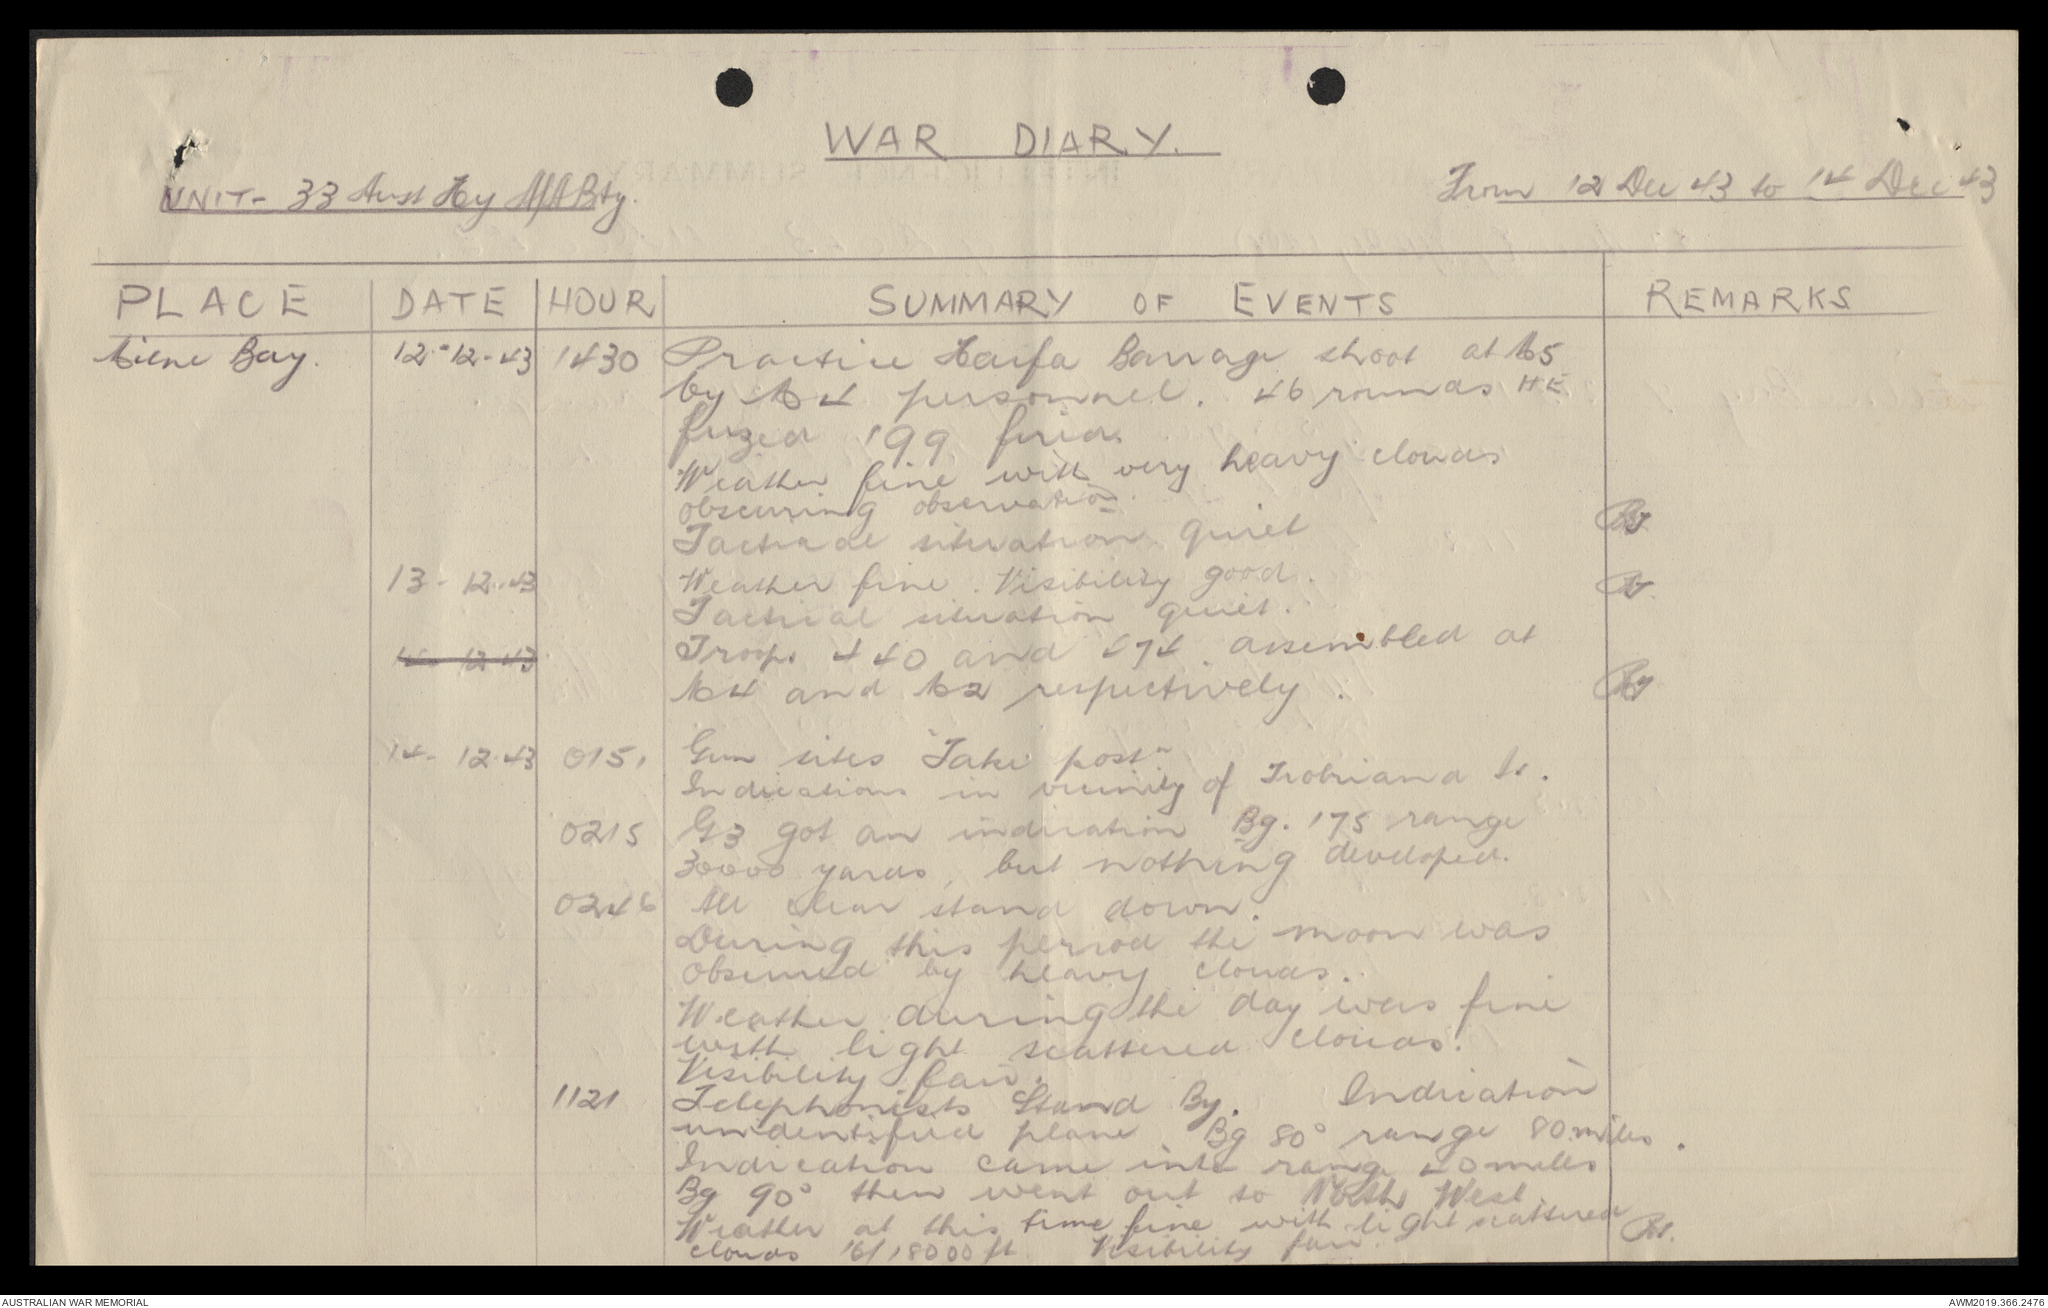 WAR DIARY.
UNIT- 33 Aust Hy A/A Bty.
From 12 Dec 43 to 14 Dec 43
PLACE DATE HOUR SUMMARY OF EVENTS REMARKS
Milne Bay. 12-12-43 1430 Practice Haifa Barrage shoot at M5
by M4 personnel. 46 rounds HE
fuzed 199 fired.
Weather fine with very heavy clouds
obscuring observation.
Tactical situation quiet
13-12-43 Weather fine. Visibility good.
Tactical situation quiet.
14-12-43 Troops 440 and 474 assembled at
M4 and M2 respectively.
14-12-43 Gun sites "Take post"
Indications in vicinity of Trobriand Is.
0215 G3 got an indication Bg. 175 range
30000 yards, but nothing developed.
0246 All clear stand down.
During this period the moon was
obscured by heavy clouds.
Weather during the day was fine
with light scattered clouds.
Visibility fair.
1121 Telephonists Stand By. Indication
unidentified plane Bg 80° range 80 miles.
Indication came into range 40 miles
Bg 90° then went out to North West.
Weather at this time fine with light scattered
clouds 16/18000 ft. Visibility fair.
AUSTRALIAN WAR MEMORIAL
AWM2019.366.2476